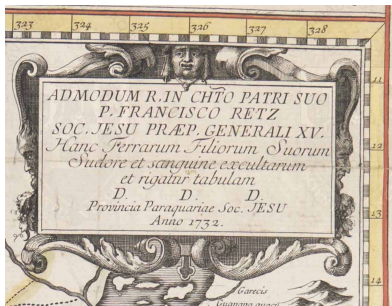 323 324 325 326 327 328
ADMODUM R. IN CHTO PATRI SUO
P. FRANCISCO RETZ
SOC. JESU PRÆP. GENERALI XV.
Hanc Terrarum Filiorum Suorum
Sudore et sanguine excultarum
et rigatur tabulam
D. D. D.
Provincia Paraquariae Soc. JESU
Anno 1732.
11
12
13
14
Garecis